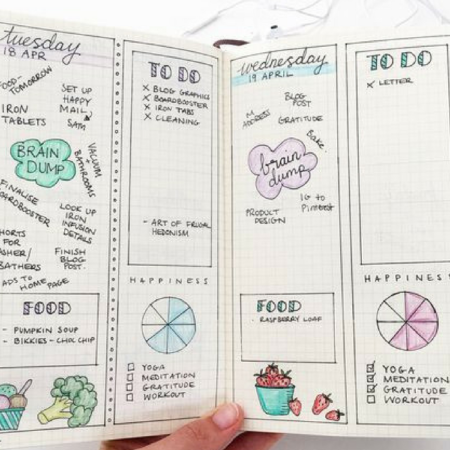 tuesday
18 APR
FOOD-
TOMORROW
SET UP
HAPPY
MAIL
IRON
TABLETS
SATA
BRAIN
DUMP
VACUUM
+
BATHROOMS
FINALISE
BOARDBOOSTER
LOOK UP
IRON
INFUSION
DETAILS
FOR
BATHERS
FINISH
BLOG
POST.
ADS TO HOME PAGE
FOOD
- PUMPKIN SOUP
- BIKKIES - CHOC CHIP
TO DO
X BLOG GRAPHICS
X BOARDBOOSTER
X IRON TABS
X CLEANING
- ART OF FRUGAL
HEDONISM
HAPPINESS
YOGA
MEDITATION
GRATITUDE
WORKOUT
wednesday
19 APRIL
BLOG
POST
M
ADDRESS
GRATITUDE
BAKE.
brain
dump
PRODUCT
DESIGN
IG to
Pinterest
FOOD
- RASPBERRY LOAF
TO DO
X LETTER
HAPPINESS
YOGA
MEDITATION
GRATITUDE
WORKOUT